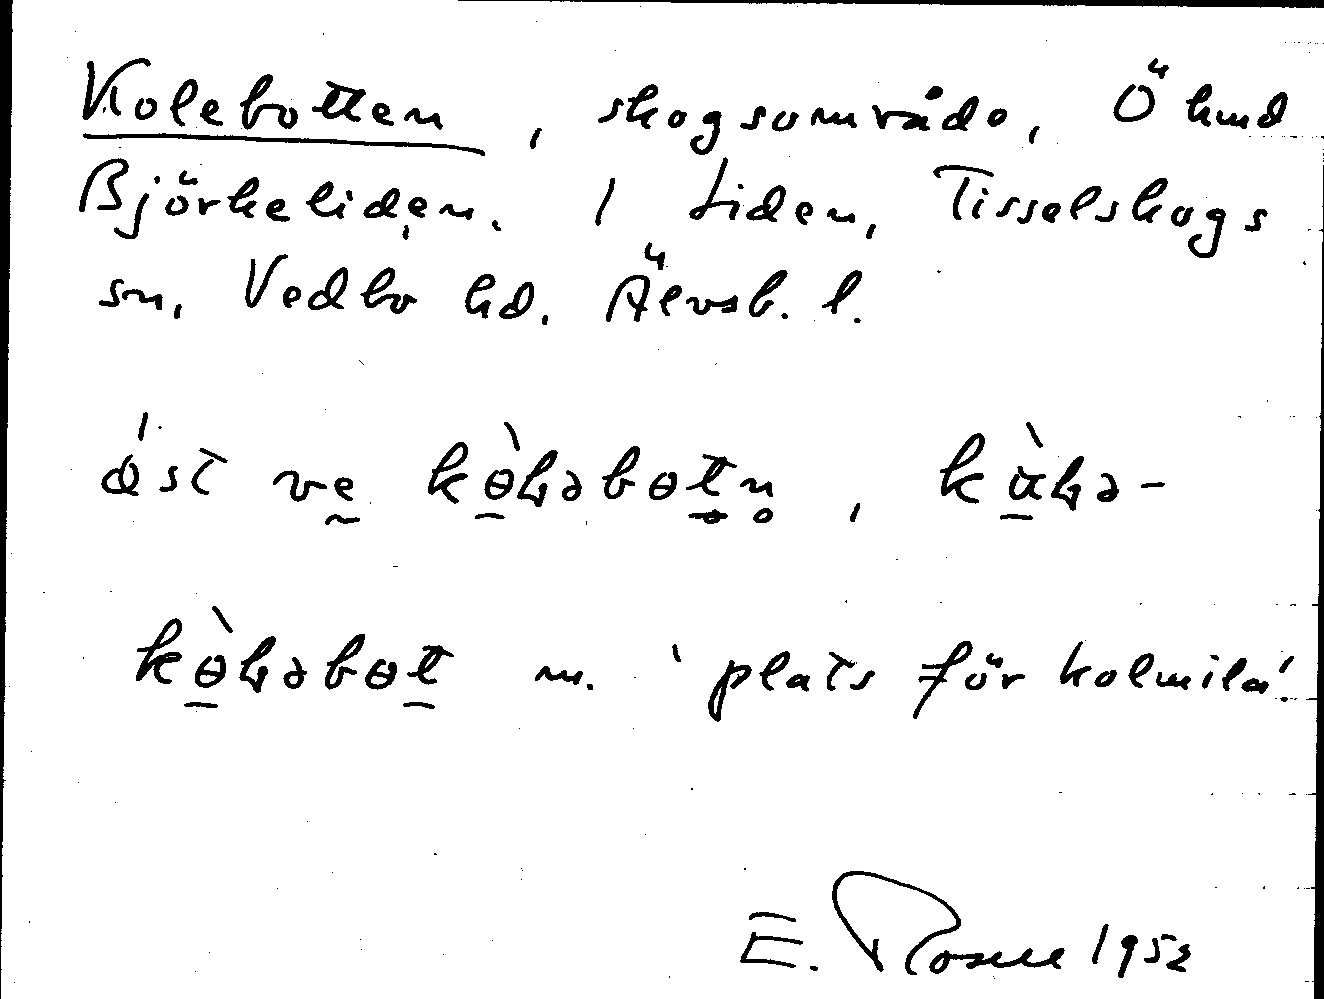 Kolebotten, skogsområde, Ö kund
Björkeliden. 1 Liden, Tisselskogs
sn, Vedbo hd. Älvsb. l.
óst ve kòləbotn, kàlə-
kòləbot m. 'plats för kolmila'.
E. 1952